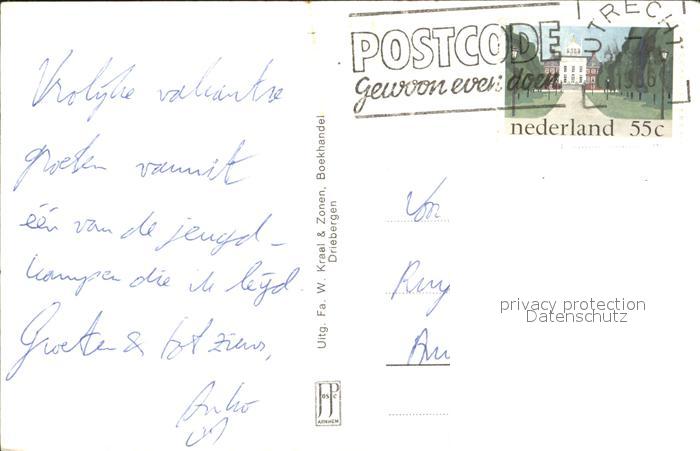 Vrolijke vakantie
groeten vanuit
één van de jeugd-
kampen die ik leijd.
Groeten & tot ziens,
Anko
Uitg. Fa. W. Kraal & Zonen, Boekhandel
Driebergen
JosPé
ARNHEM
POSTCODE
gewoon even doen
UTRECHT
nederland 55c
privacy protection
Datenschutz